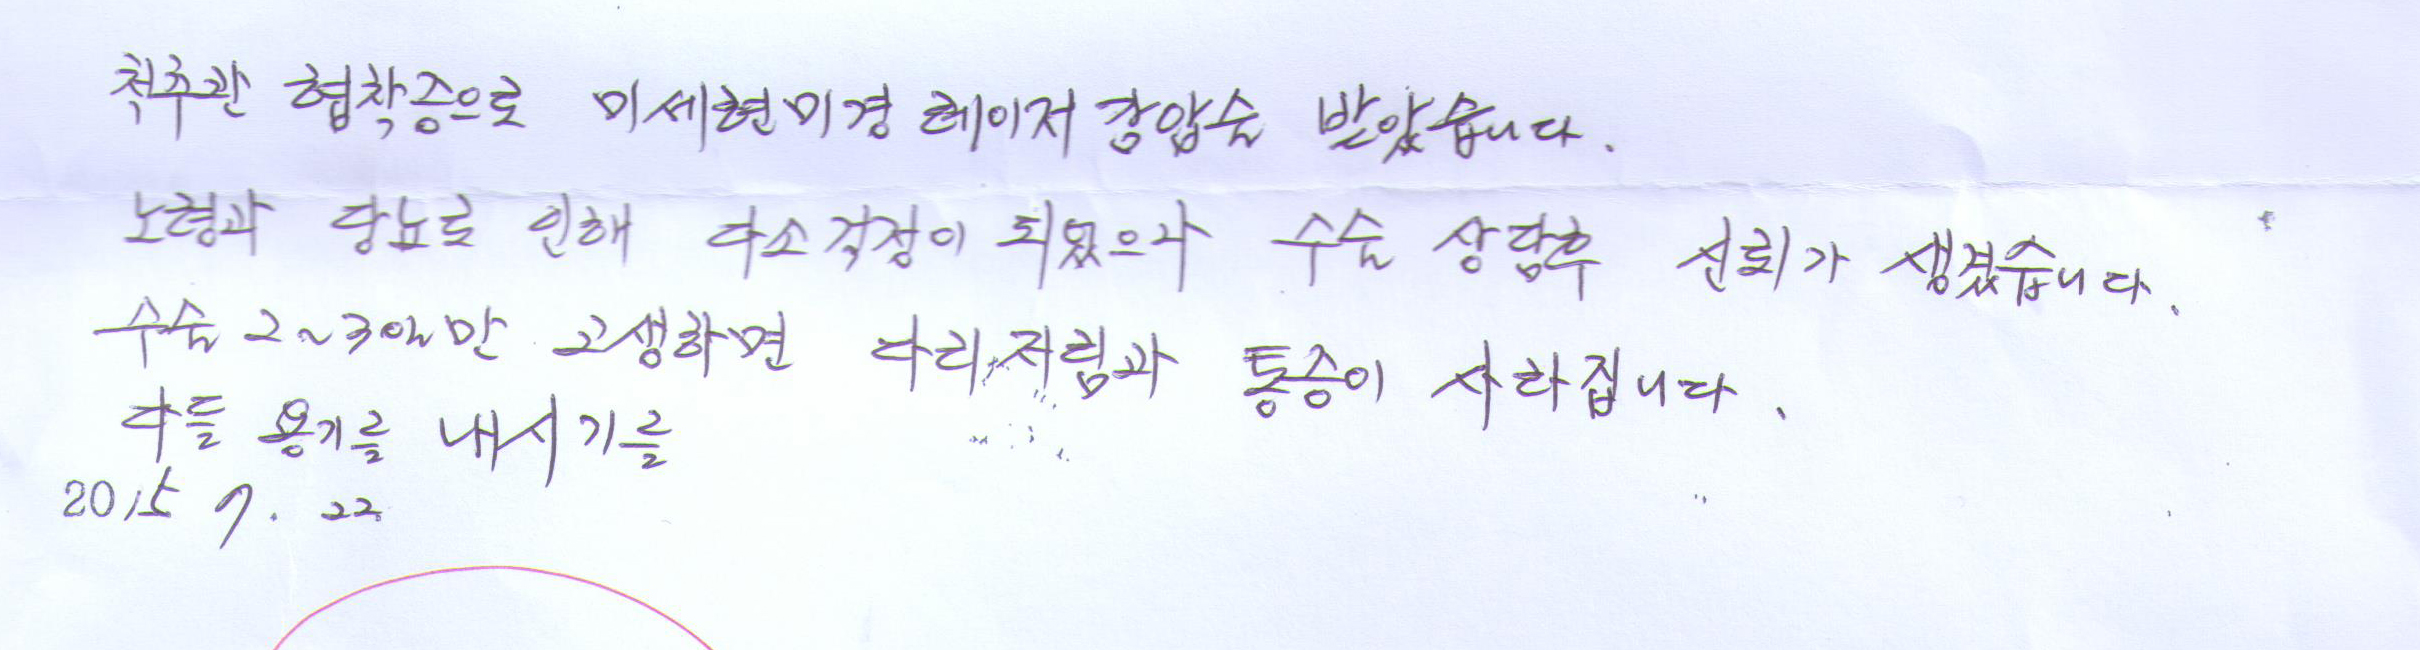 척추관 협착증으로 미세현미경 레이저 감압술 받았습니다.
노령과 당뇨로 인해 다소 걱정이 되었으나 수술 상담후 신뢰가 생겼습니다.
수술 2~3일만 고생하면 다리저림과 통증이 사라집니다.
다들 용기를 내시기를
2015 7. 22